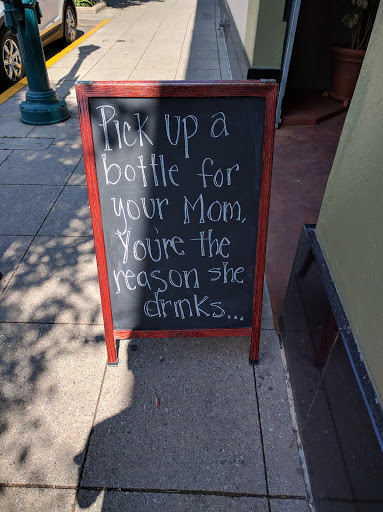 Pick up a
bottle for
your Mom.
You're the
reason she
drinks...